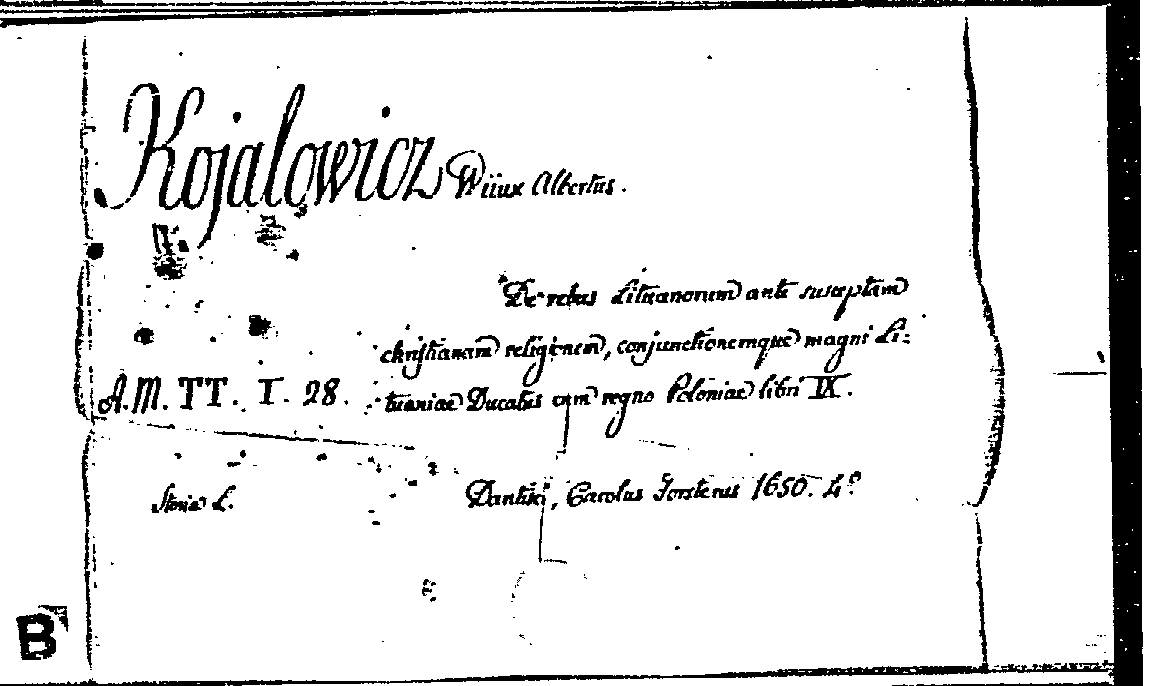 Kojalowicz Wiiux Albertus.
De rebus Lituanorum ante susceptam
christianam religionem, conjunctionemque magni Li-
A.M. TT. I. 28. tuaniae Ducatus cum regno Poloniae libri IX.
Storia L. Dantisci, Carolus Forsterus 1650. 4º.
B